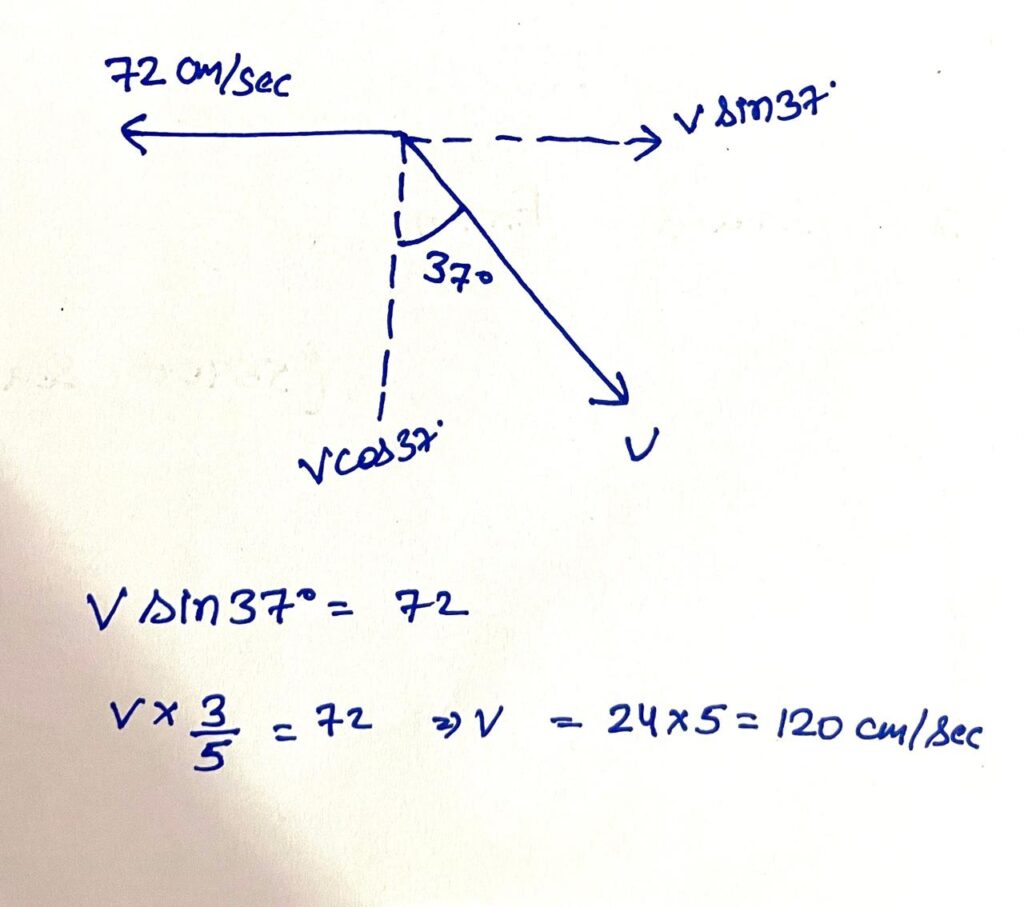 72 cm/sec
v sin37°
37°
v cos37°
v
v sin37° = 72
v × 3/5 = 72 ⇒ v = 24×5 = 120 cm/sec